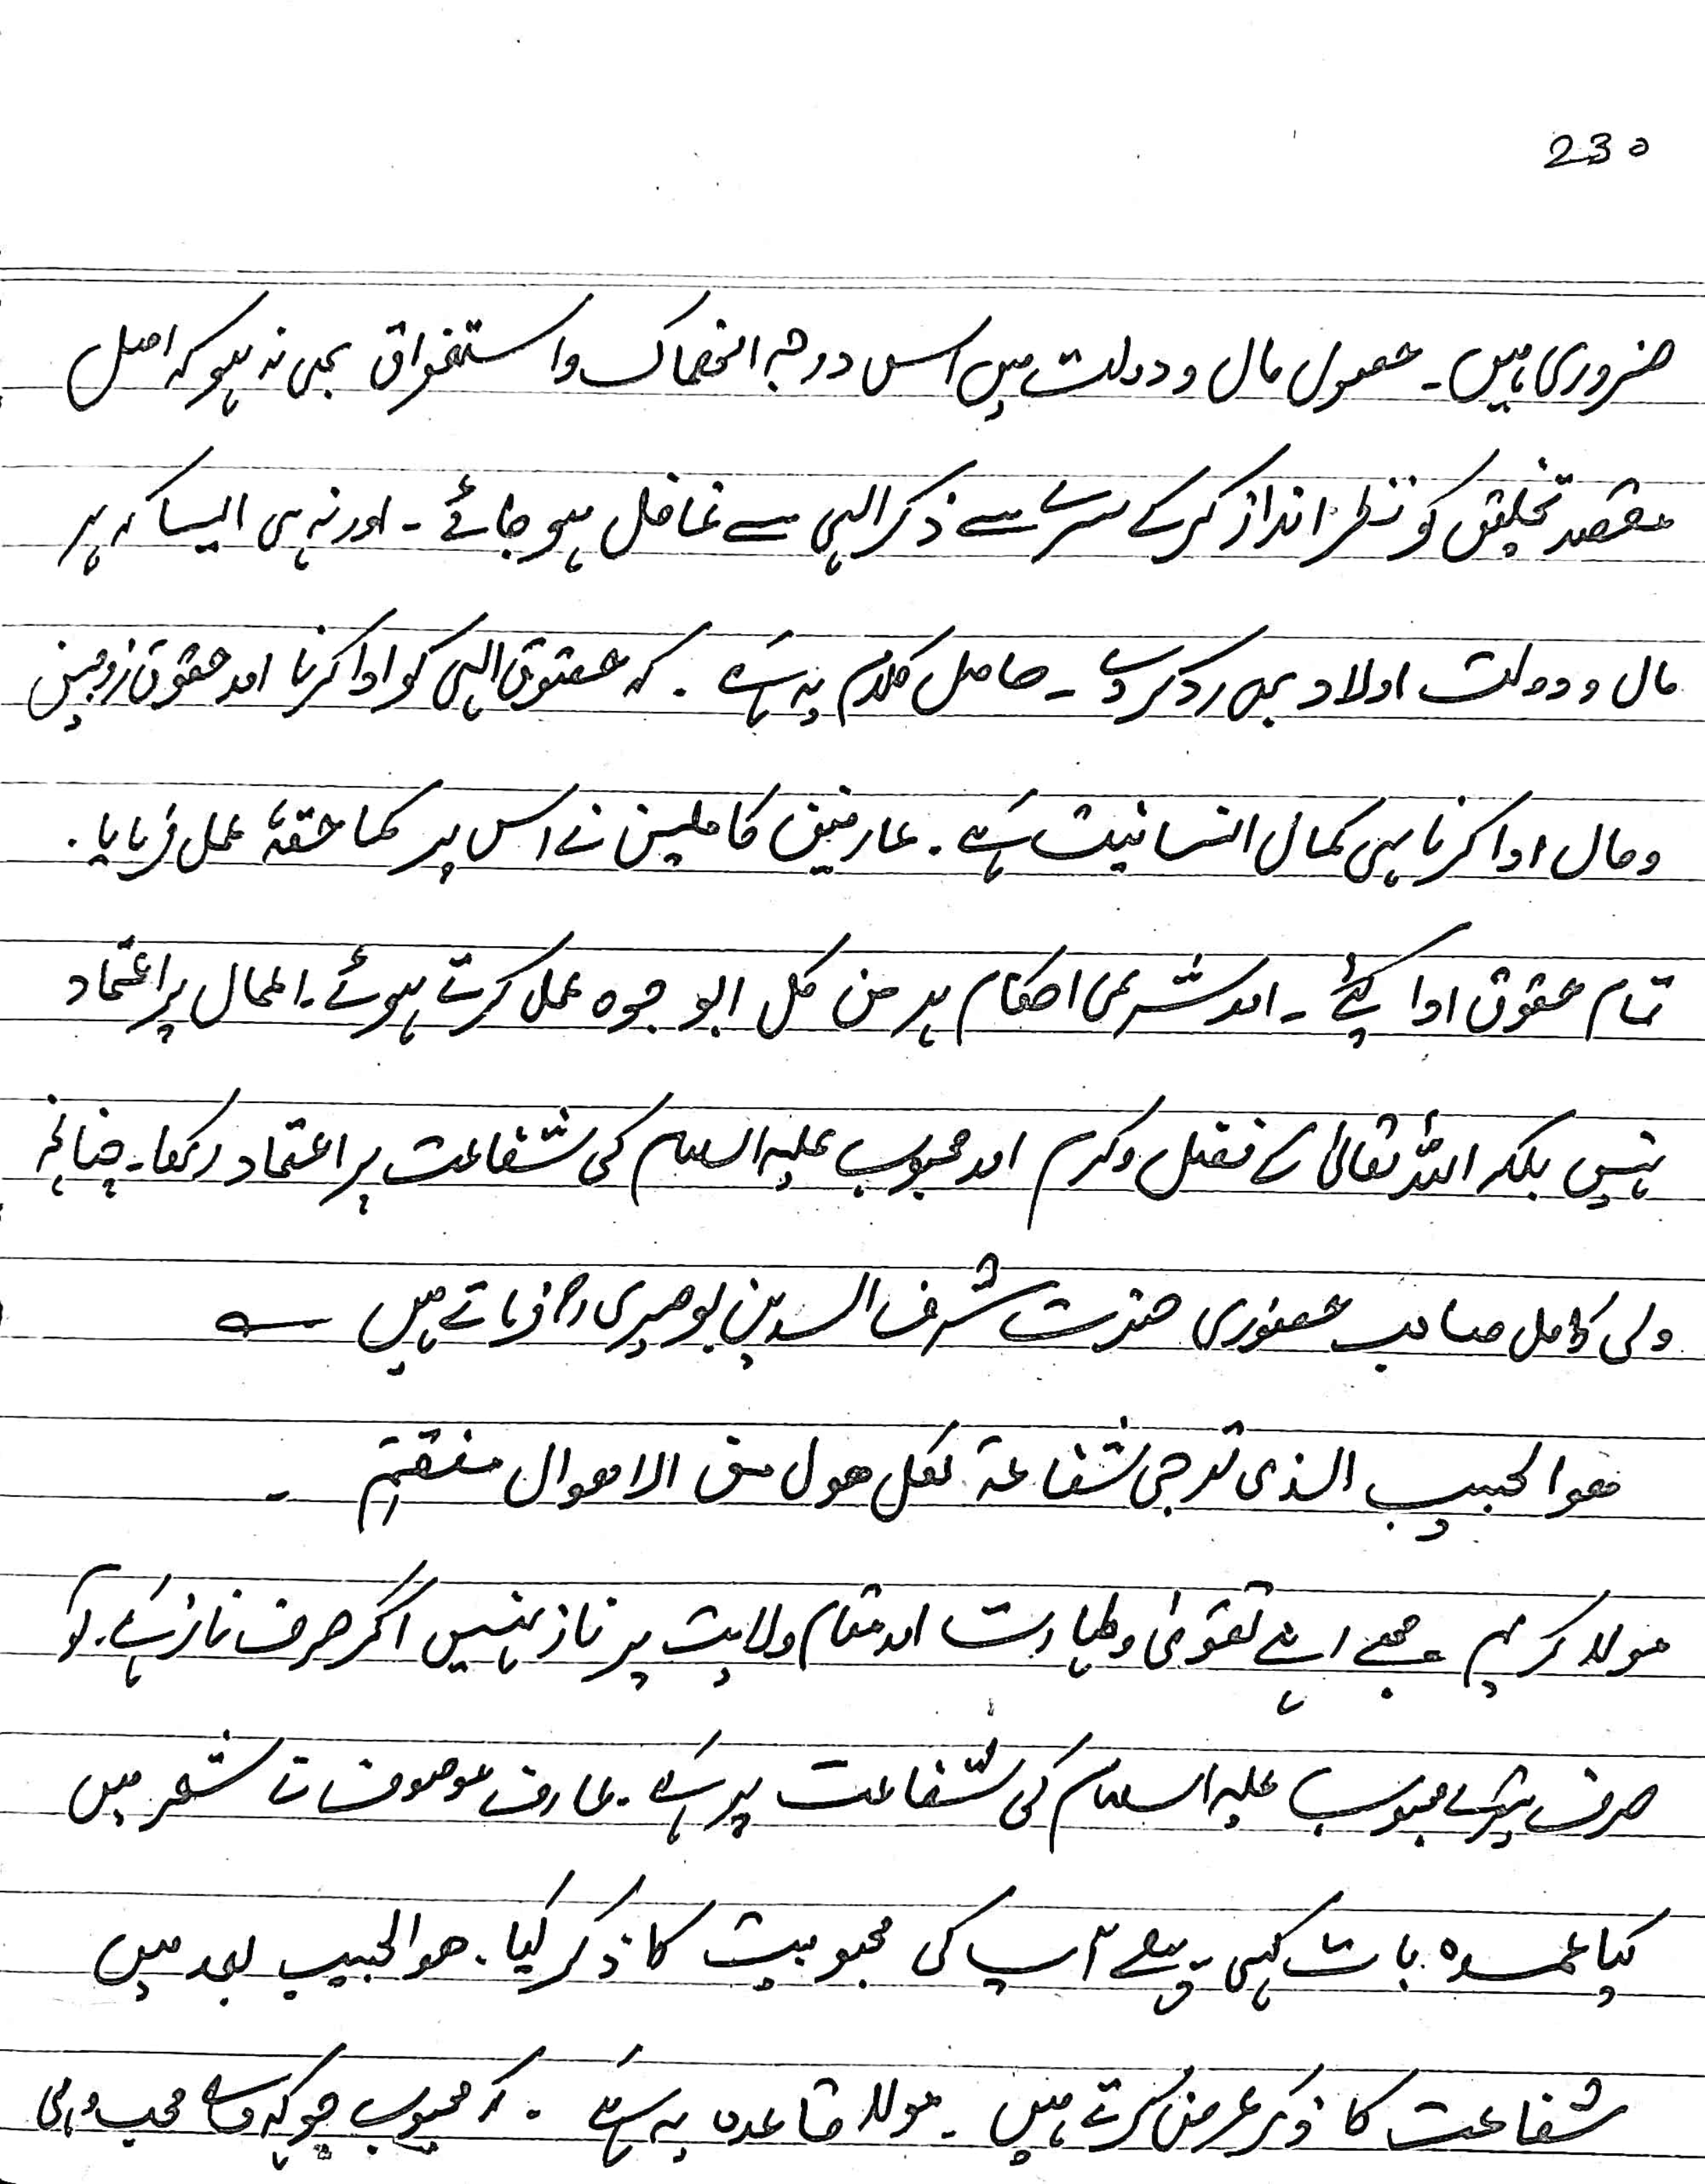 230
ضروری ہیں۔ حصول مال و دولت میں اس درجہ انھماک و استغراق بھی نہ ہو کہ اصل
مقصد تخلیق کو نظر انداز کرکے سرے سے ذکر الہی سے غافل ہو جائے ۔ اور نہ ہی ایسا کہ ہر
مال و دولت اولاد ہی رد کر دے ۔ حاصل کلام یہ ہے ۔ کہ حقوق الہی کو ادا کرنا اور حقوق زوجین
و مال ادا کرنا ہی کمال انسانیت ہے ۔ عارفین کاملین نے اس پر کما حقہٗ عمل فرمایا ۔
تمام حقوق ادا کیئے ۔ اور شرعی احکام پر من کل الوجوہ عمل کرتے ہوئے ۔ اعمال پر اعتماد
نہیں بلکہ اللہ تعالیٰ کے فضل و کرم اور محبوب علیہ السلام کی شفاعت پر اعتماد رکھا ۔ چنانچہ
ولی کامل صاحب حضوری حضرت شرف الدین بوصیری رح فرماتے ہیں ؎
ھو الحبیب الذی ترجی شفاعۃ لکل ھول من الاھوال مقتحم ۔
مولا کریم مجھے اپنے تقویٰ و طہارت اور مقام ولایت پر ناز نہیں اگر صرف ناز ہے ۔ تو
صرف تیرے محبوب علیہ السلام کی شفاعت پر ہے ۔ عارف موصوف نے شعر میں
کیا عمدہ بات کہی ۔ پہلے آپ کی محبوبیت کا ذکر کیا ۔ ھو الحبیب بعد میں
شفاعت کا ذکر عرض کرتے ہیں ۔ مولا قاعدہ یہ ہے ۔ کہ محبوب جو کہے محب وہی